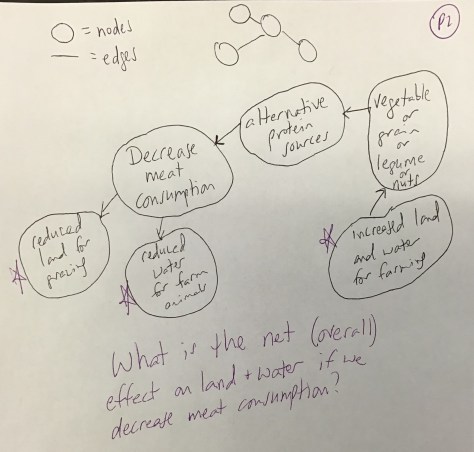 = nodes
= edges
P2
vegetable
or
grain
or
legume
or
nuts
alternative
protein
sources
Decrease
meat
consumption
increased land
and water
for farming
reduced
land for
grazing
reduced
water
for farm
animals
What is the net (overall)
effect on land + water if we
decrease meat consumption?